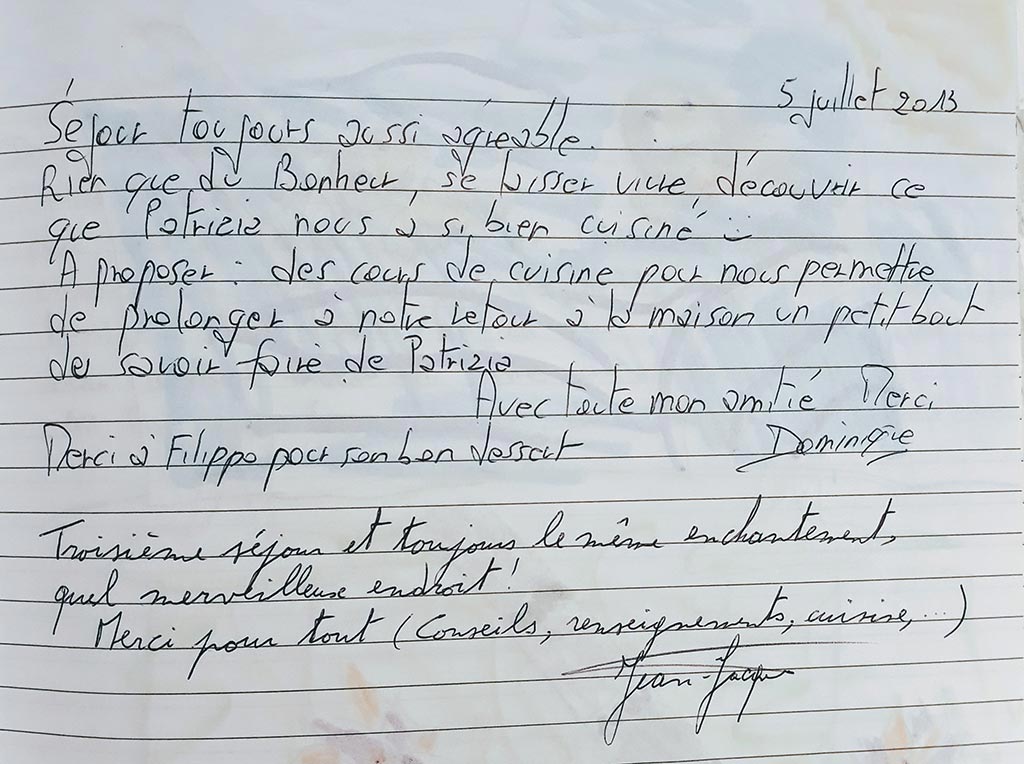 5 juillet 2013
Séjour toujours aussi agréable.
Rien que du Bonheur, se laisser vivre, découvrir ce
que Patrizia nous a si bien cuisiné :)
A proposer : des cours de cuisine pour nous permettre
de prolonger à notre retour à la maison un petit bout
de savoir faire de Patrizia
Avec toute mon amitié Merci
Merci à Filippo pour son bon dessert Dominique
Troisième séjour et toujours le même enchantement,
quel merveilleux endroit !
Merci pour tout (Conseils, renseignements, cuisine, ...)
Jean-Jacques